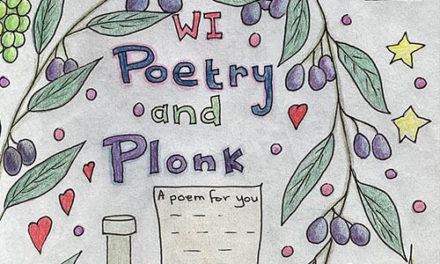 WI
Poetry
and
Plonk
A poem for you